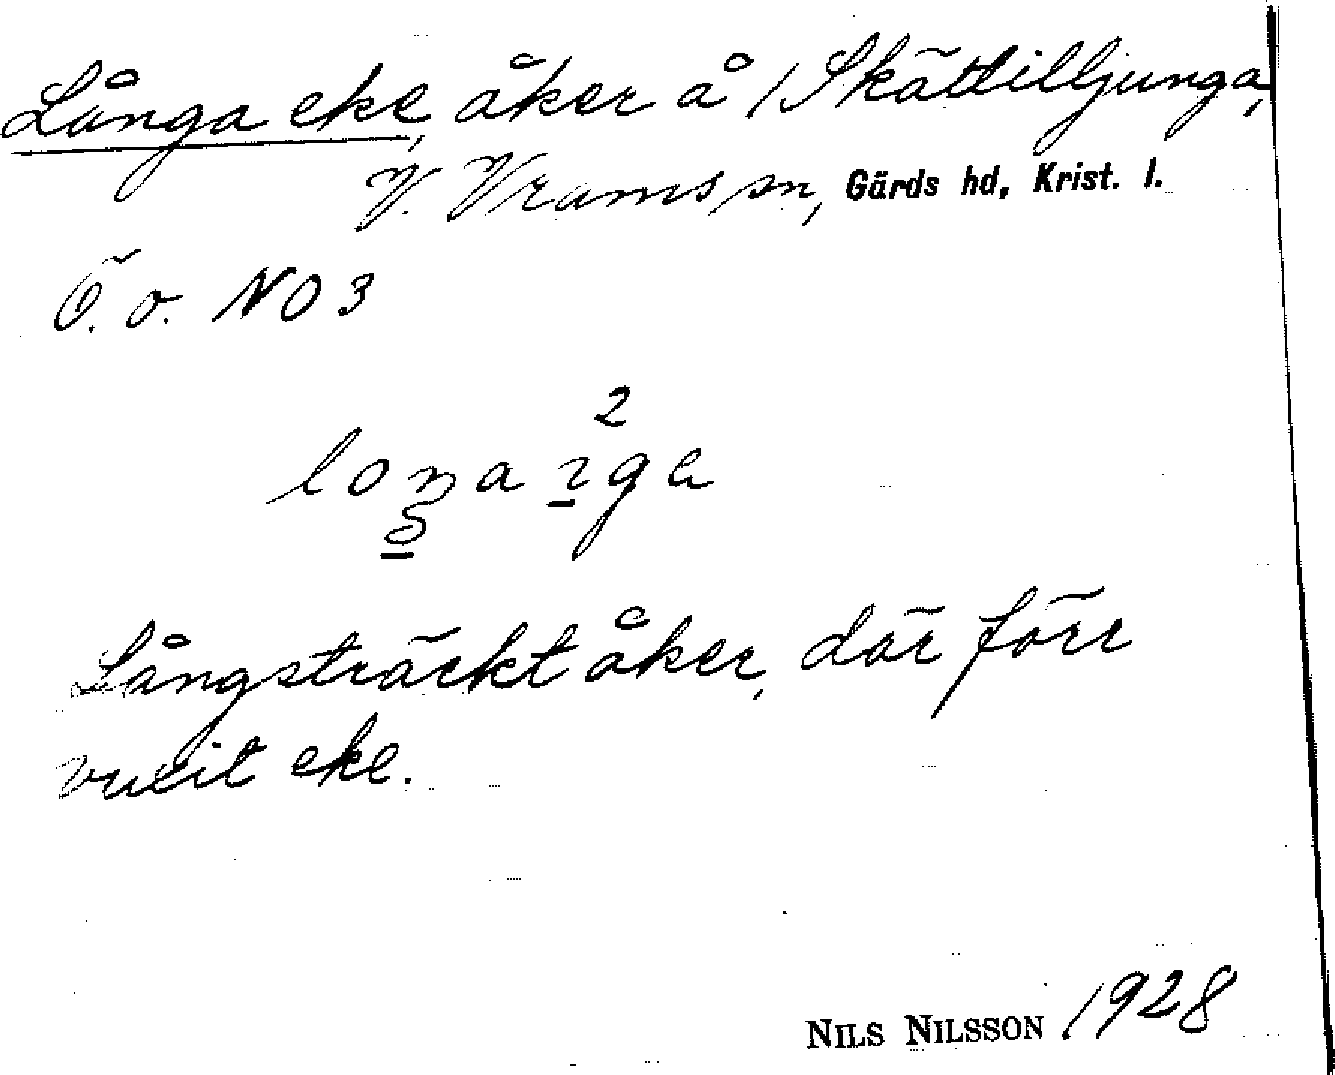 Långa eke, åker å 1 Skättilljunga,
V. Vrams sn, Gärds hd, Krist. l.
Ö. o. NO 3
2
Långsträckt åker, där förr
vuxit eke.
NILS NILSSON 1928